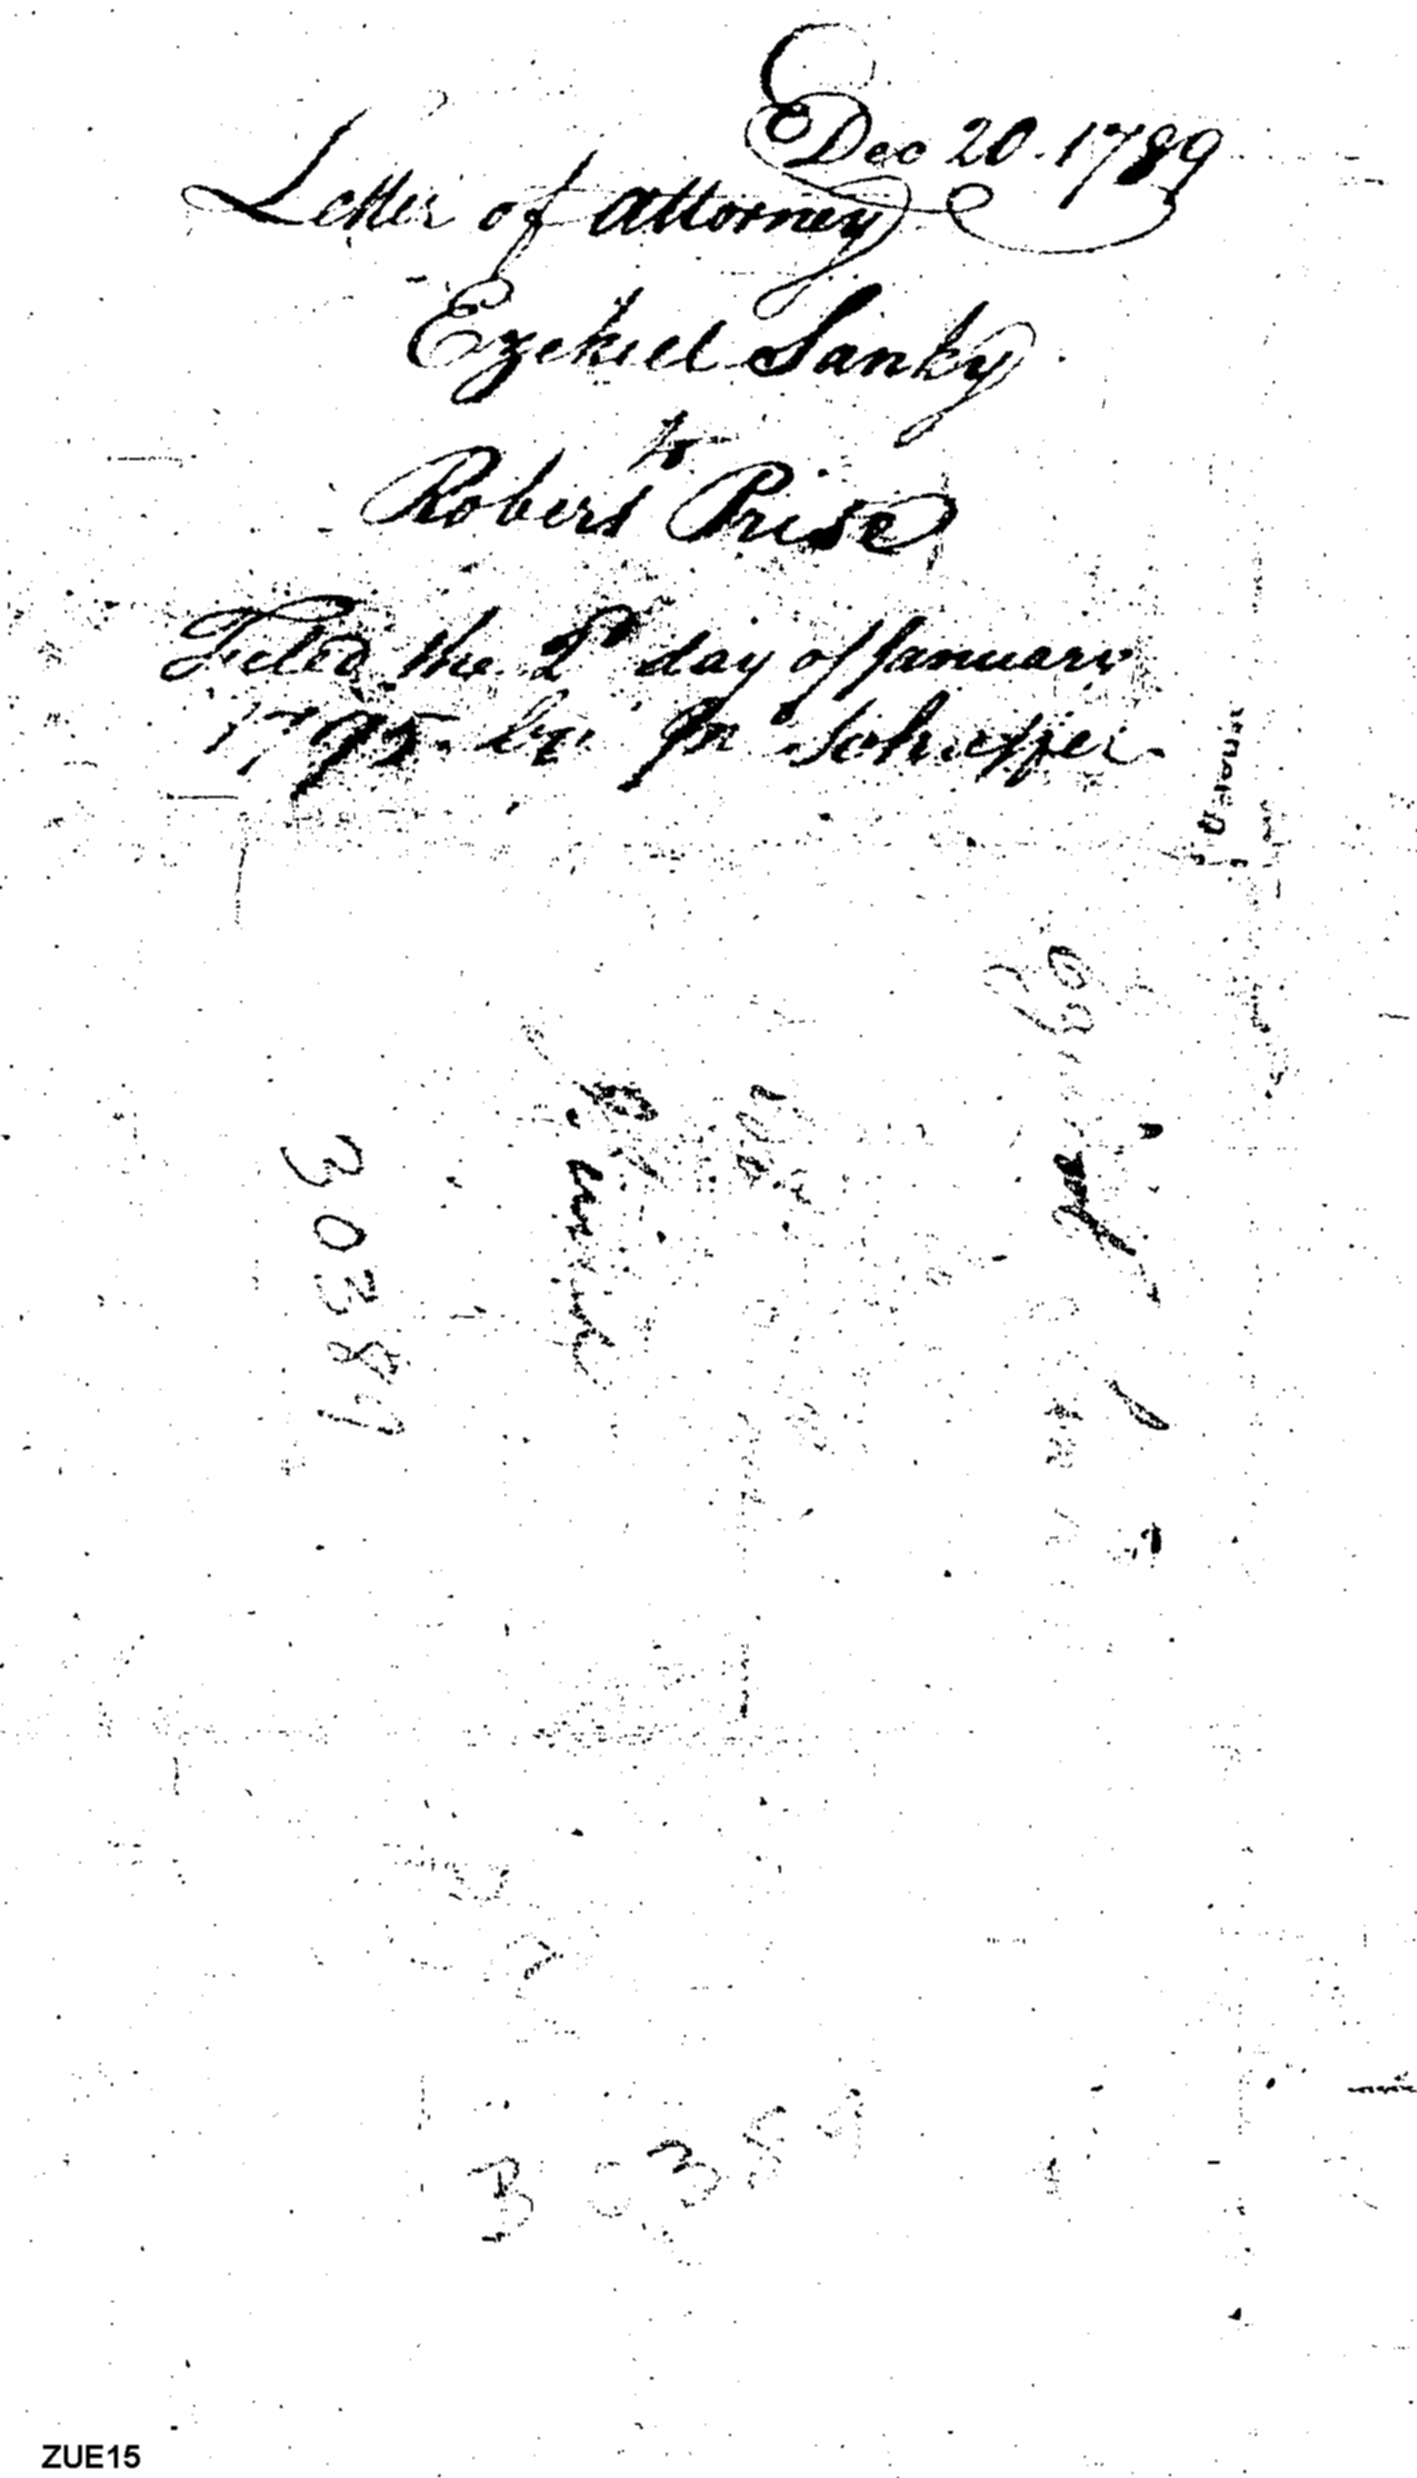 Dec 20. 1789
Letter of attorney
Ezekiel Sanky
to
Robert Prise
Filed the 2d day of January
1795. by Jn Schaffer
30389
30389
ZUE15